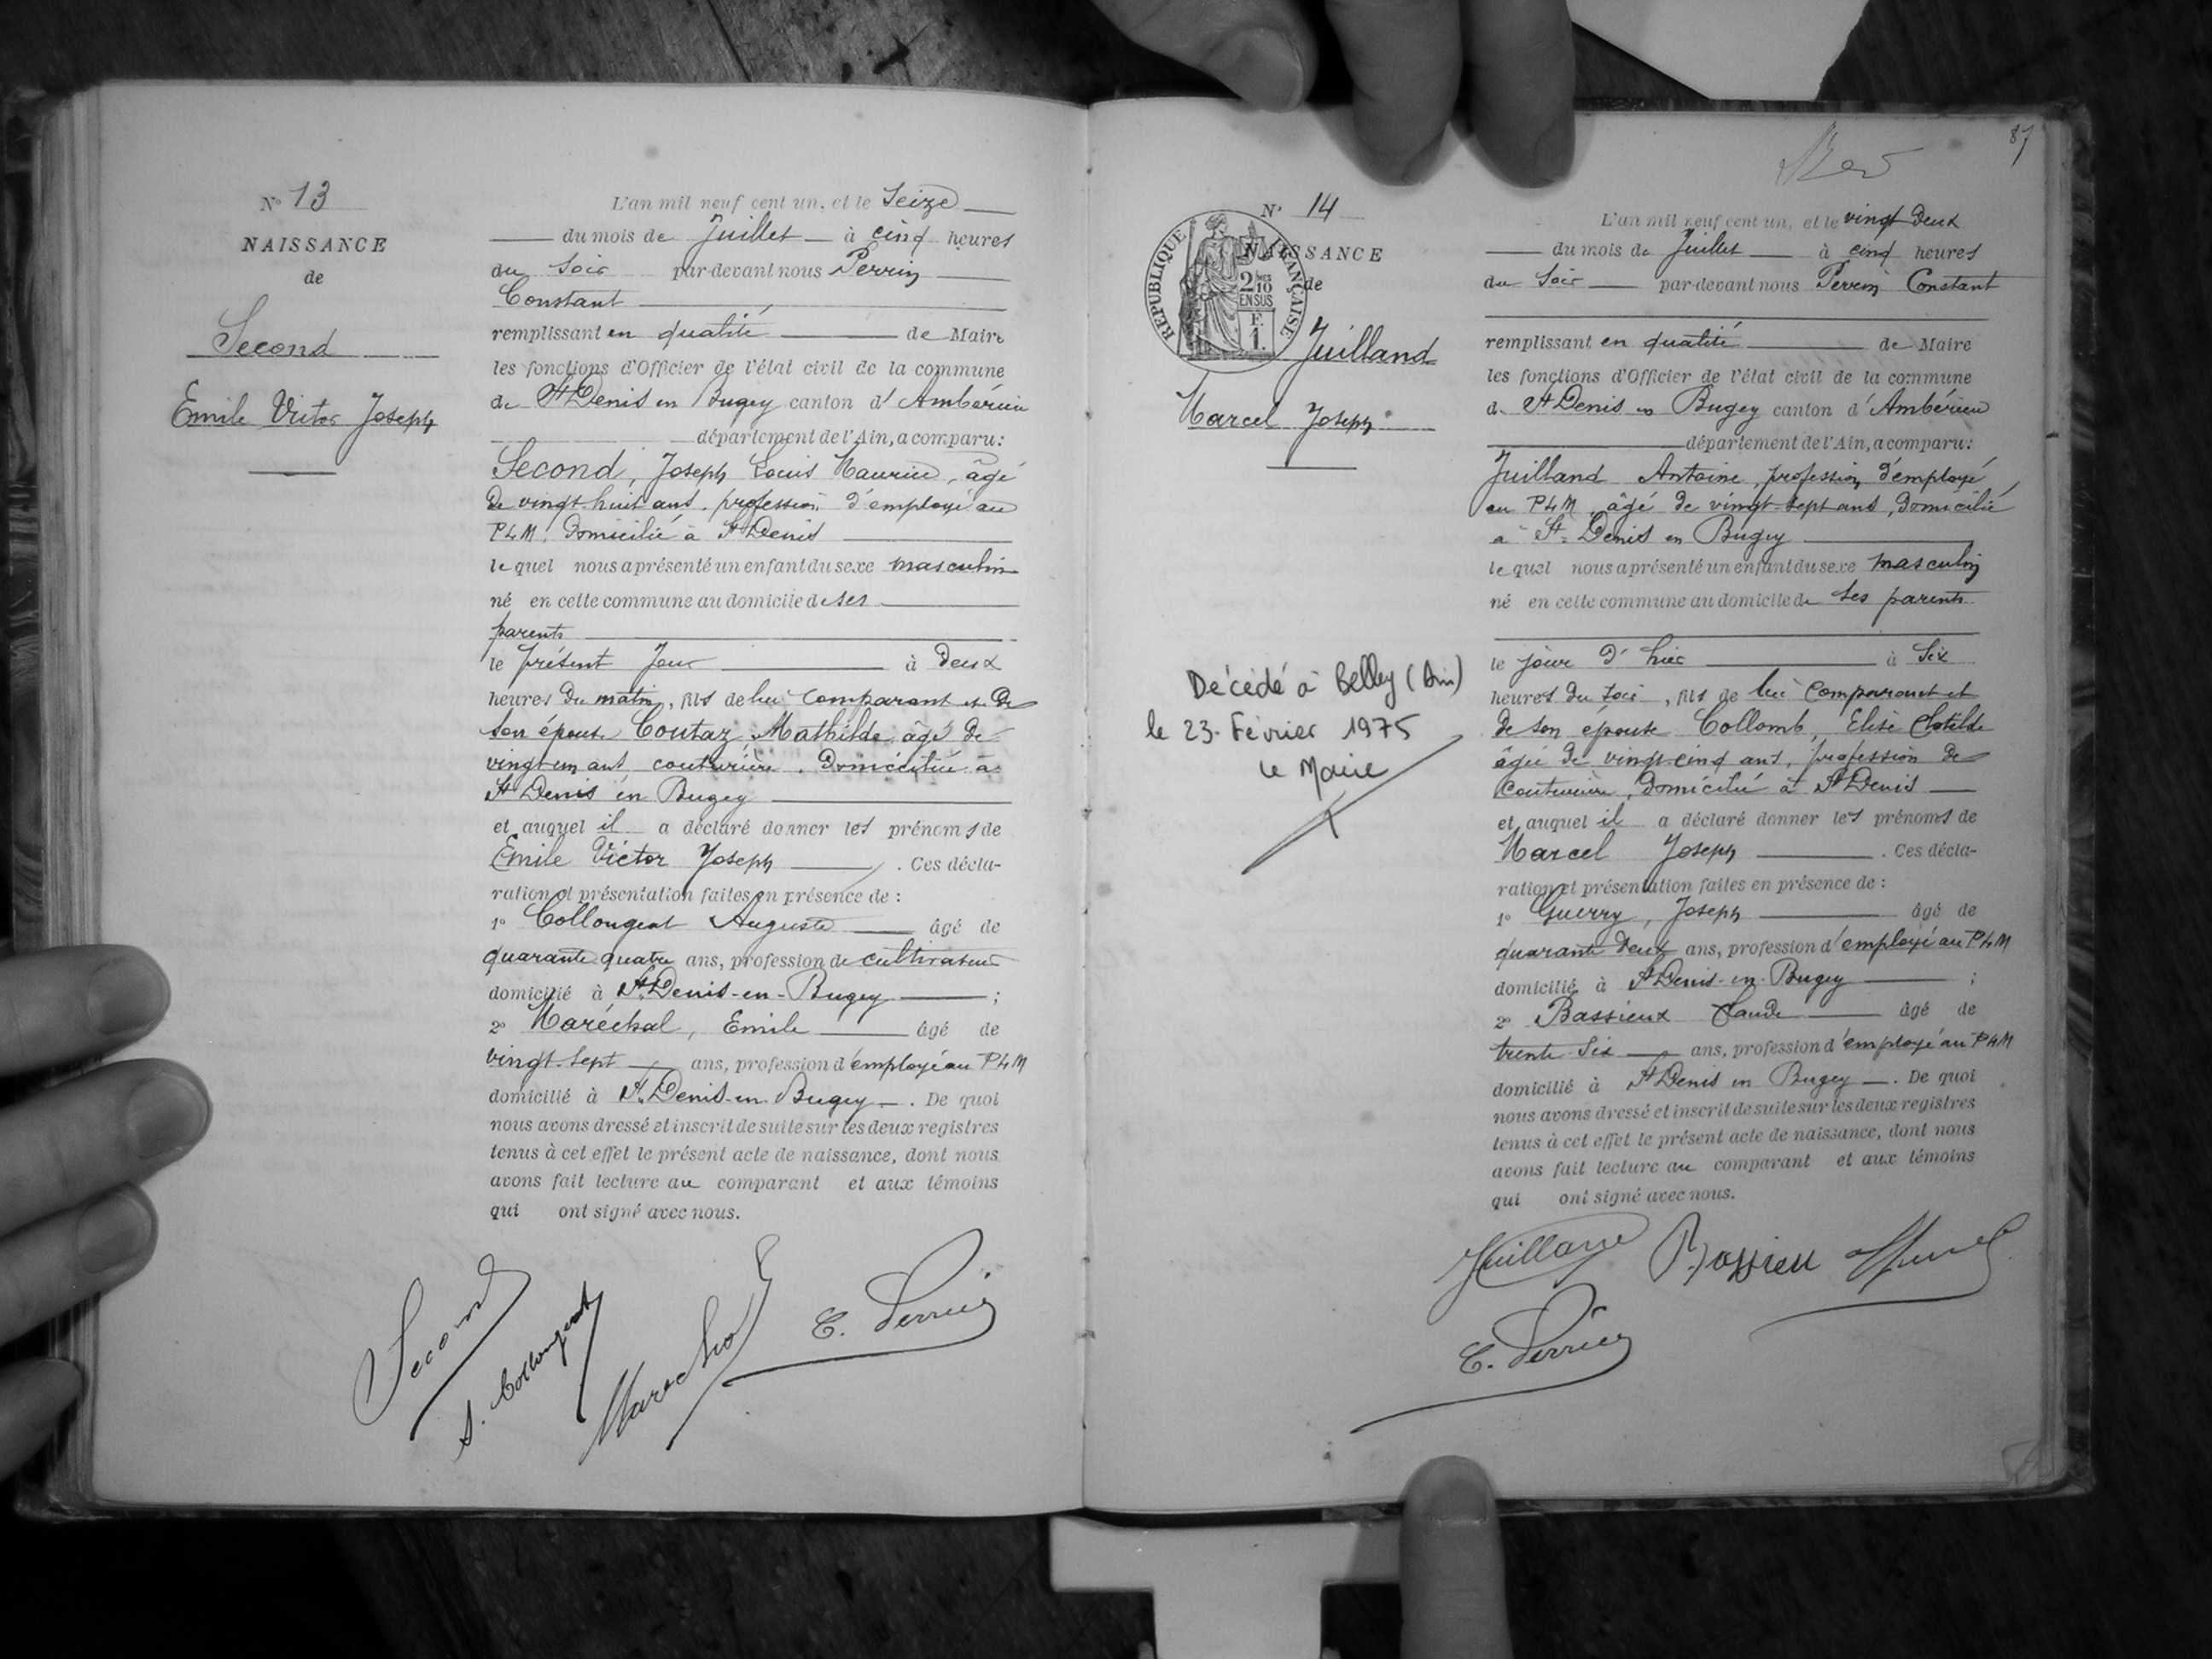 N° 13
NAISSANCE
de
Second
Emile Victor Joseph
L'an mil neuf cent un, et le Seize
du mois de Juillet à cinq heures
du Soir par-devant nous Perrin
Constant
remplissant en qualité de Maire
les fonctions d'Officier de l'état civil de la commune
de St Denis en Bugey canton d'Ambérieu
département de l'Ain, a comparu:
Second, Joseph Louis Maurice, âgé
de vingt huit ans, profession d'employé au
PLM, domicilié à St Denis
lequel nous a présenté un enfant du sexe masculin
né en cette commune au domicile de ses
parents
le présent jour à deux
heures du matin, fils de lui comparant et de
son épouse Coutaz Mathilde âgé de
vingt un ans couturière, domiciliée à
St Denis en Bugey
et auquel il a déclaré donner les prénoms de
Emile Victor Joseph. Ces décla-
ration et présentation faites en présence de :
1° Collongeat Auguste âgé de
quarante quatre ans, profession de cultivateur
domicilié à St Denis-en-Bugey ;
2° Maréchal, Emile âgé de
vingt-sept ans, profession d'employé au PLM
domicilié à St Denis-en-Bugey. De quoi
nous avons dressé et inscrit de suite sur les deux registres
tenus à cet effet le présent acte de naissance, dont nous
avons fait lecture au comparant et aux témoins
qui ont signé avec nous.
Second
Collongeat
Marechal E
C. Perrin
87
N° 14
NAISSANCE
de
RÉPUBLIQUE FRANÇAISE
2 MES
10
EN SUS
F.
1.
Juilland
Marcel Joseph
Décédé à Belley (Ain)
le 23. Février 1975
Le Maire
L'an mil neuf cent un, et le vingt deux
du mois de Juillet à cinq heures
du Soir par-devant nous Perrin Constant
remplissant en qualité de Maire
les fonctions d'Officier de l'état civil de la commune
de St Denis en Bugey canton d'Ambérieu
département de l'Ain, a comparu:
Juilland Antoine, profession d'employé
au PLM, âgé de vingt-sept ans, domicilié
à St Denis en Bugey
lequel nous a présenté un enfant du sexe masculin
né en cette commune au domicile de ses parents
le jour d'hier à Six
heures du soir, fils de lui comparant et
de son épouse Collomb, Elise Clotilde
âgée de vingt-cinq ans, profession de
couturière, domicilié à St Denis
et auquel il a déclaré donner les prénoms de
Marcel Joseph. Ces décla-
ration et présentation faites en présence de :
1° Guerry, Joseph âgé de
quarante deux ans, profession d'employé au PLM
domicilié à St Denis-en-Bugey ;
2° Bassieux Claude âgé de
trente Six ans, profession d'employé au PLM
domicilié à St Denis en Bugey. De quoi
nous avons dressé et inscrit de suite sur les deux registres
tenus à cet effet le présent acte de naissance, dont nous
avons fait lecture au comparant et aux témoins
qui ont signé avec nous.
Juilland Bassieu
C. Perrin